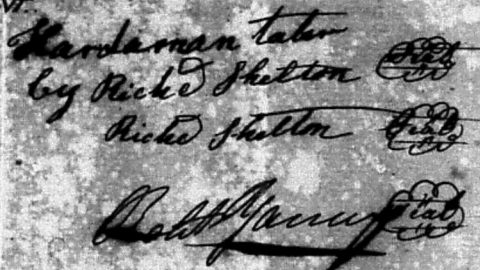 Hardaman taber Seal
by Riched Shelton
Riched Shelton Seal
Robt Yancey Seal